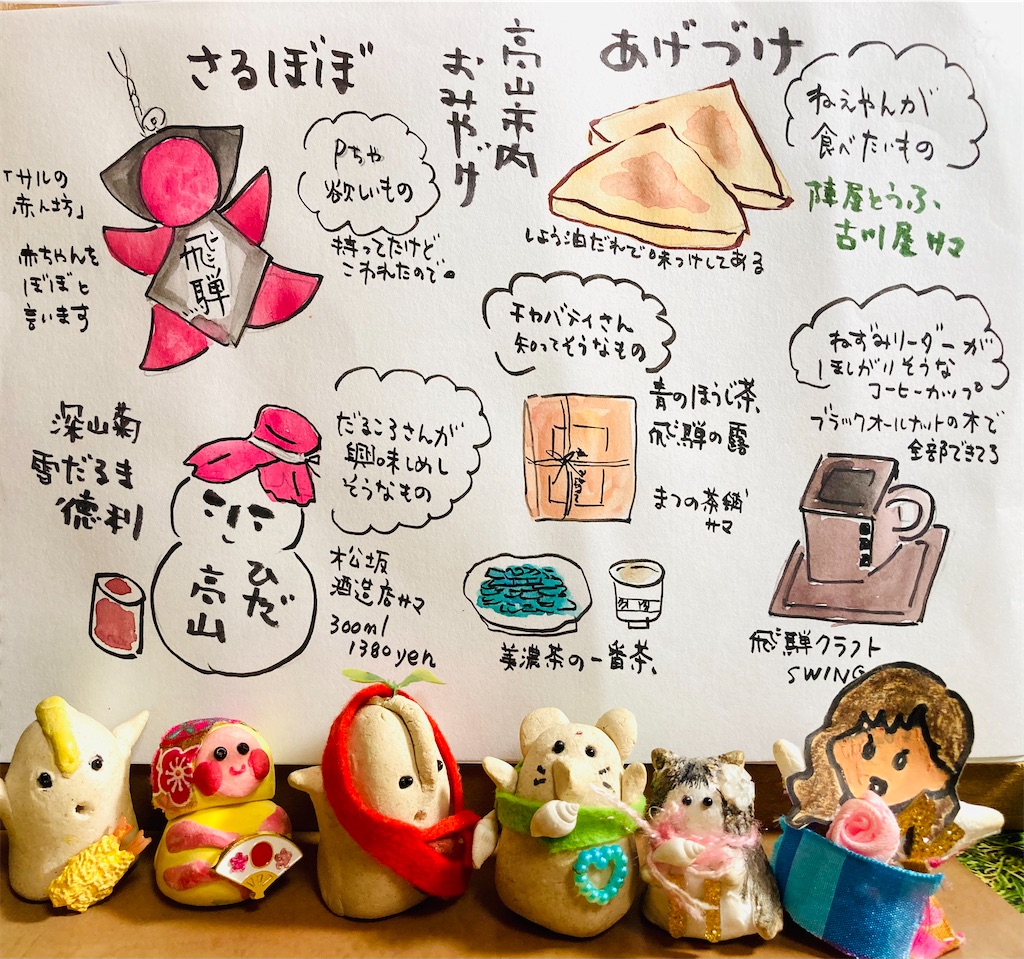 高山市内
おみやげ
さるぼぼ
「サルの
赤ん坊」
赤ちゃんを
ぼぼと
言います
飛騨
Pちゃ
欲しいもの
持ってたけど
こわれたので。
あげづけ
しょう油だれで味つけしてある
ねえやんが
食べたいもの
陣屋とうふ、
古川屋サマ
チャバティさん
知ってそうなもの
青のほうじ茶、
飛騨の露
まつの茶舗
サマ
美濃茶の一番茶、
ねずみリーダーが
ほしがりそうな
コーヒーカップ。
ブラックオールナットの木で
全部できてる
飛騨クラフト
SWING
深山菊
雪だるま
徳利
ひだ
高山
だるころさんが
興味しめし
そうなもの
松坂
酒造店サマ
300ml
1380yen